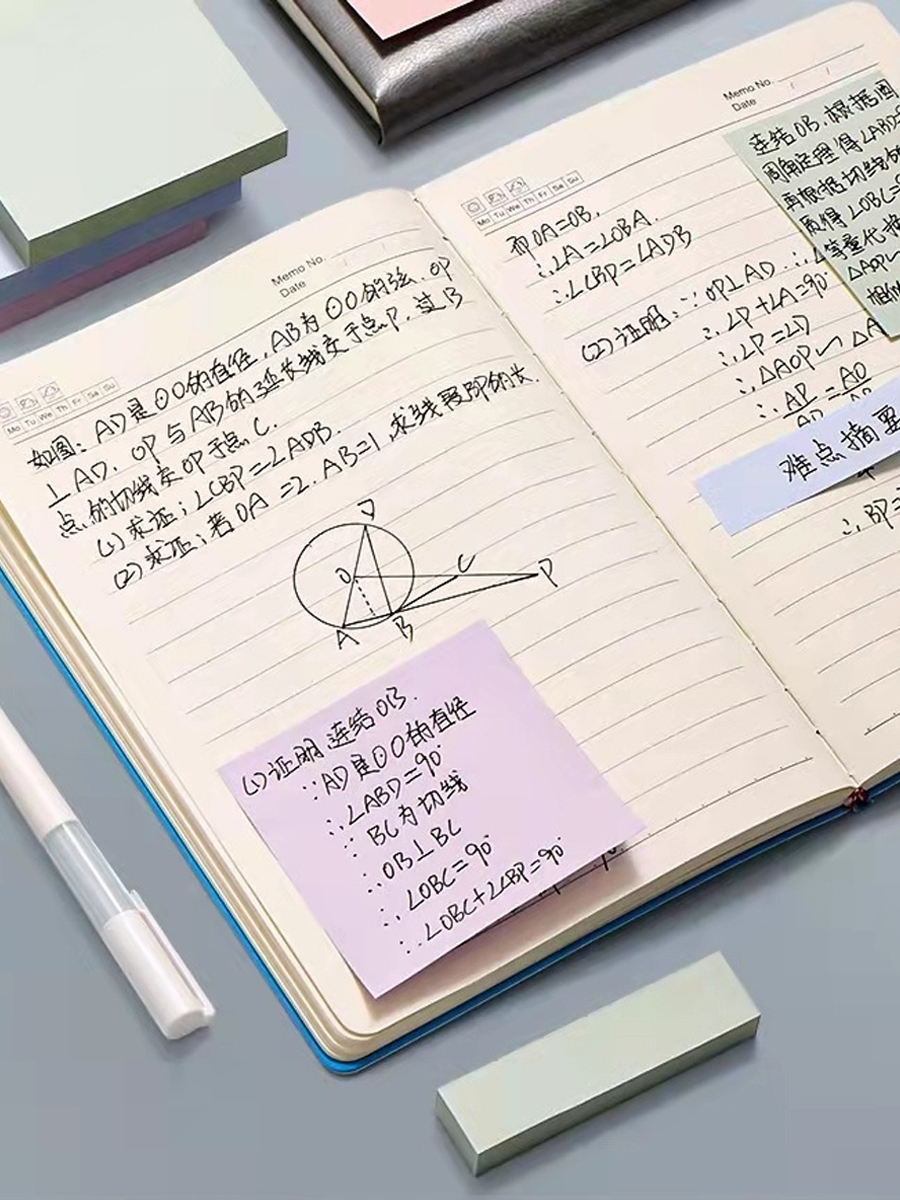 Memo No.
Date
Mo Tu We Th Fr Sa Su
如图:AD是⊙O的直径,AB为⊙O的弦.OP
⊥AD.OP与AB的延长线交于点P,过B
点的切线交OP于点C.
(1)求证:∠CBP=∠ADB.
(2)求证:若OA=2.AB=1,求线段BP的长.
D
O
C
P
A
B
(1)证明 连结OB.
∵AD是⊙O的直径
∴∠ABD=90°
∵BC为切线
∴OB⊥BC
∴∠OBC=90°
∴∠OBC+∠CBP=90°
Memo No.
Date
Mo Tu We Th Fr Sa Su
而OA=OB,
∴∠A=∠OBA.
∴∠CBP=∠ADB
(2)证明:∵OP⊥AD.∴∠
∴∠P+∠A=90°
∴∠P=∠D
∴△AOP∽△A
∴AP/AD=AO
∴BP=
连结OB.根据圆
周角定理得∠ABD=
再根据切线的
质得∠OBC=
等量代
△AOP∽
相似
难点摘要